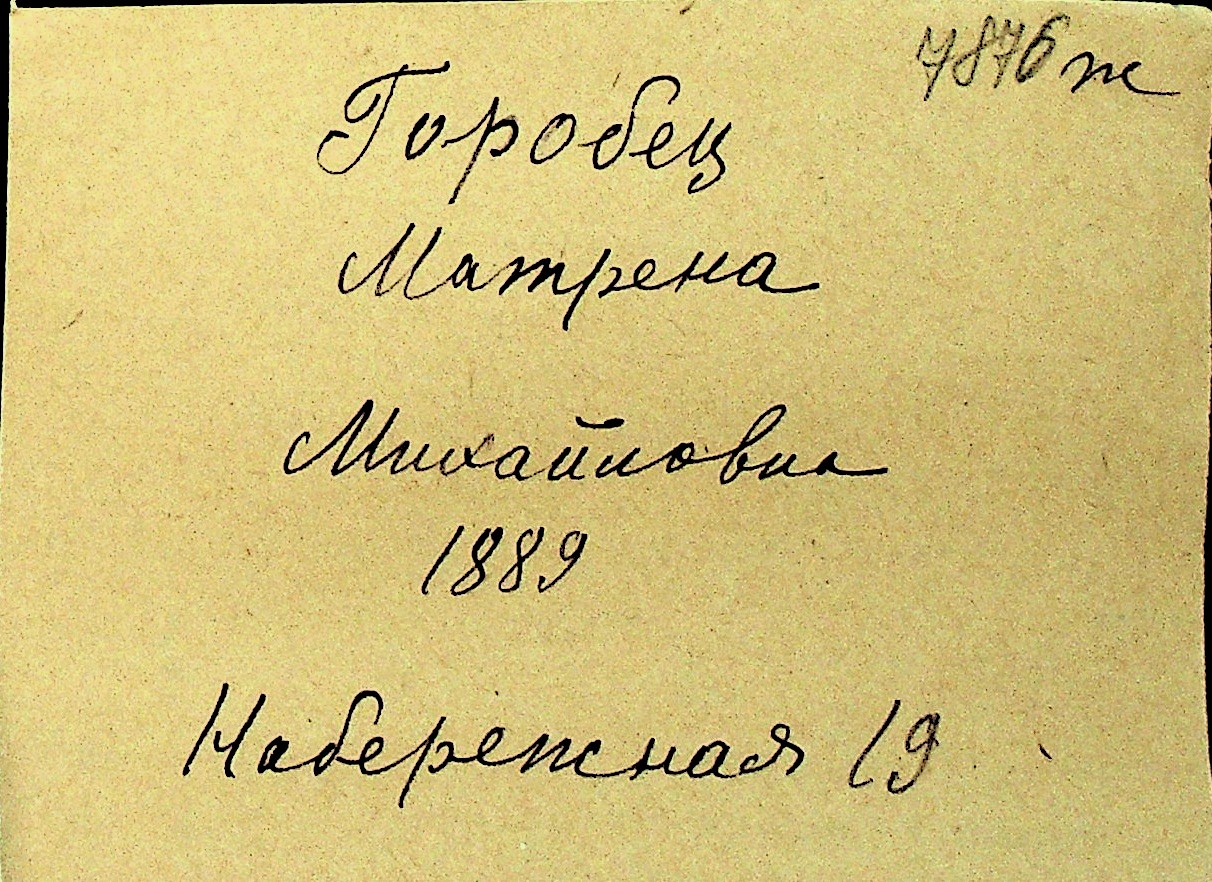 7876 ж
Горобец
Матрена
Михайловна
1889
Набережная 19